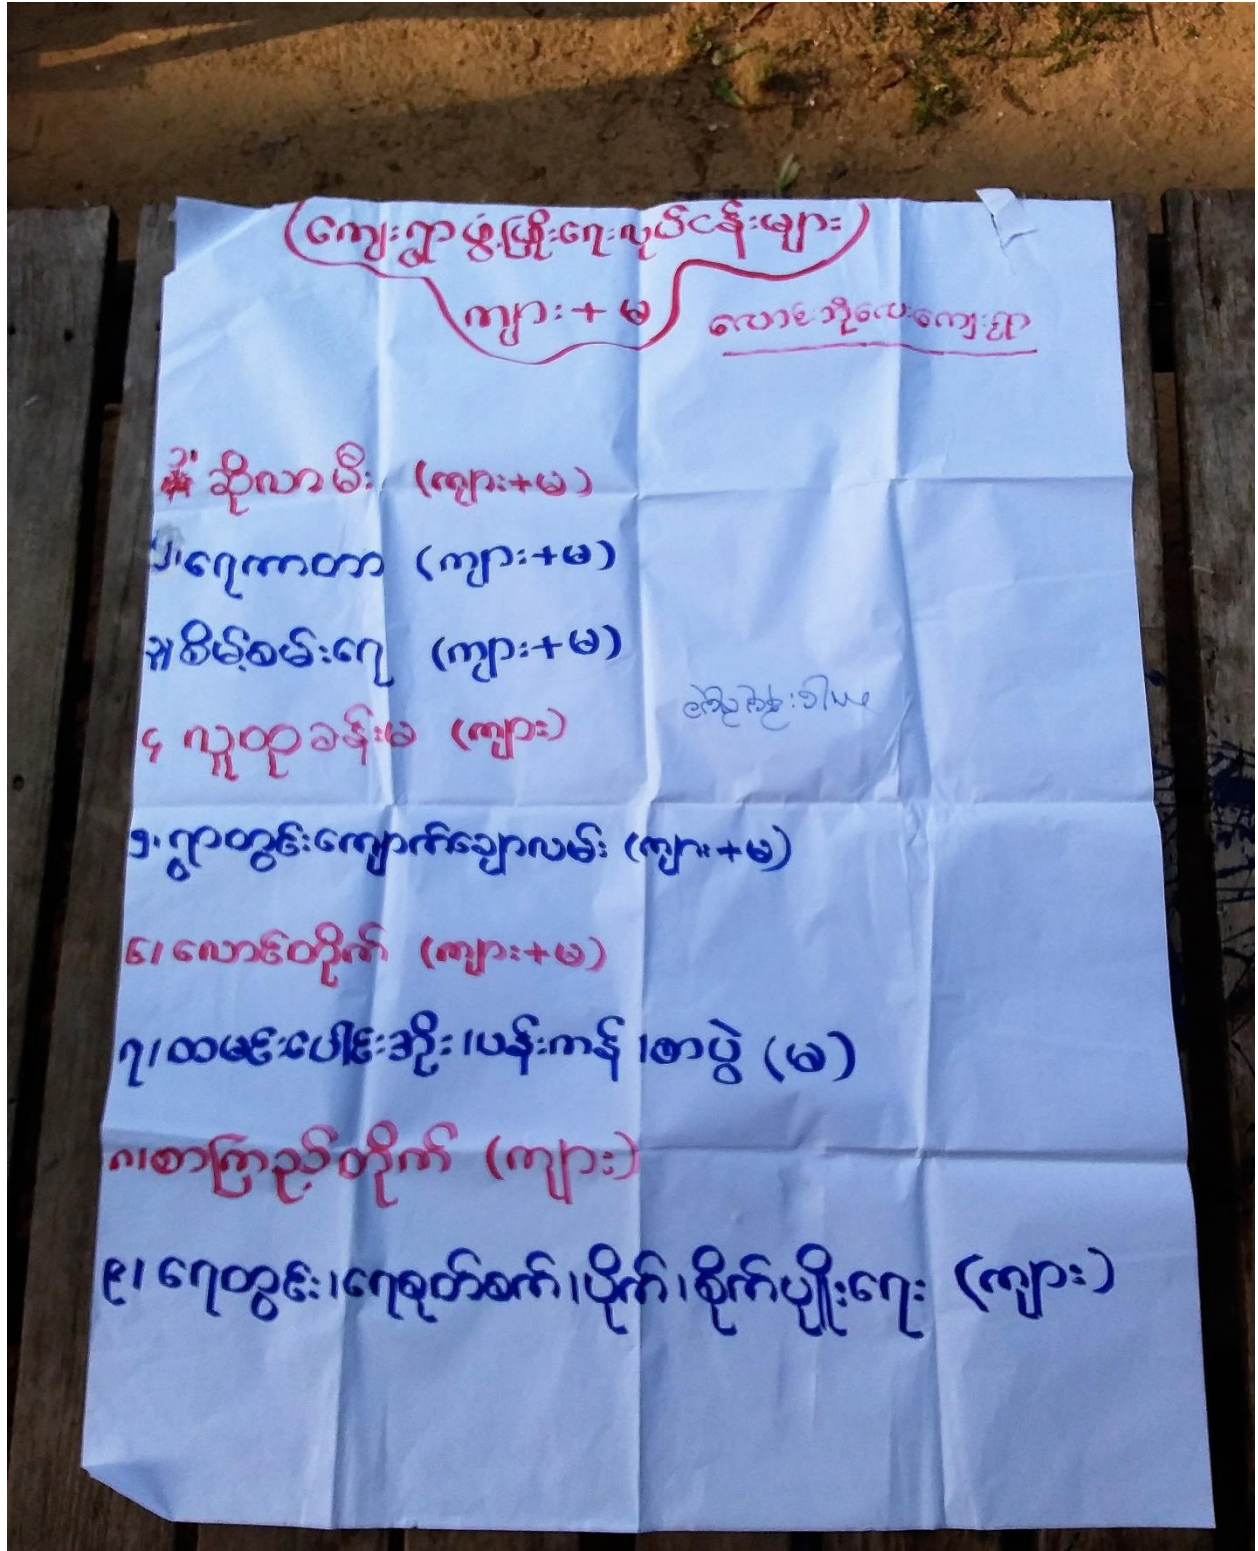 ကျေးရွာဖွံ့ဖြိုးရေးလုပ်ငန်းများ
ကျား + မ
လောင်ဘိုလေးကျေးရွာ
၁။ ဆိုလာမီး (ကျား+မ)
၂။ ရေကာတာ (ကျား+မ)
၃။ စိမ့်စမ်းရေ (ကျား+မ)
၄ လူထုခန်းမ (ကျား)
၅။ ရွာတွင်းကျောက်ချောလမ်း (ကျား+မ)
၆။ လောင်တိုက် (ကျား+မ)
၇။ ထမင်းပေါင်းအိုး ၊ပန်းကန် ၊စားပွဲ (မ)
၈။ စာကြည့်တိုက် (ကျား)
၉။ ရေတွင်း ၊ရေစုတ်စက် ၊ပိုက် ၊စိုက်ပျိုးရေး (ကျား)